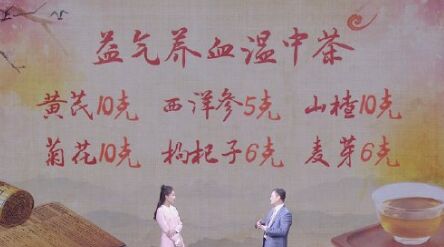 益气养血温中茶
黄芪10克 西洋参5克 山楂10克
菊花10克 枸杞子6克 麦芽6克